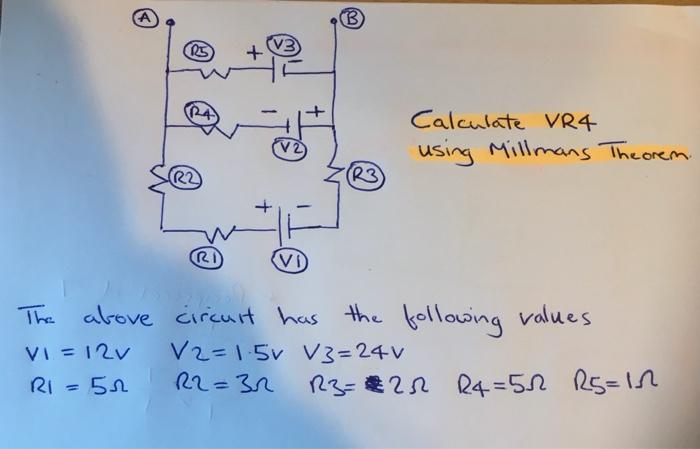 A B
R5 + V3 -
R4 - + V2
Calculate VR4
using Millmans Theorem.
R2 R3
+ -
R1 V1
The above circuit has the following values
V1 = 12v V2 = 1.5v V3 = 24v
R1 = 5Ω R2 = 3Ω R3 = 2Ω R4 = 5Ω R5 = 1Ω